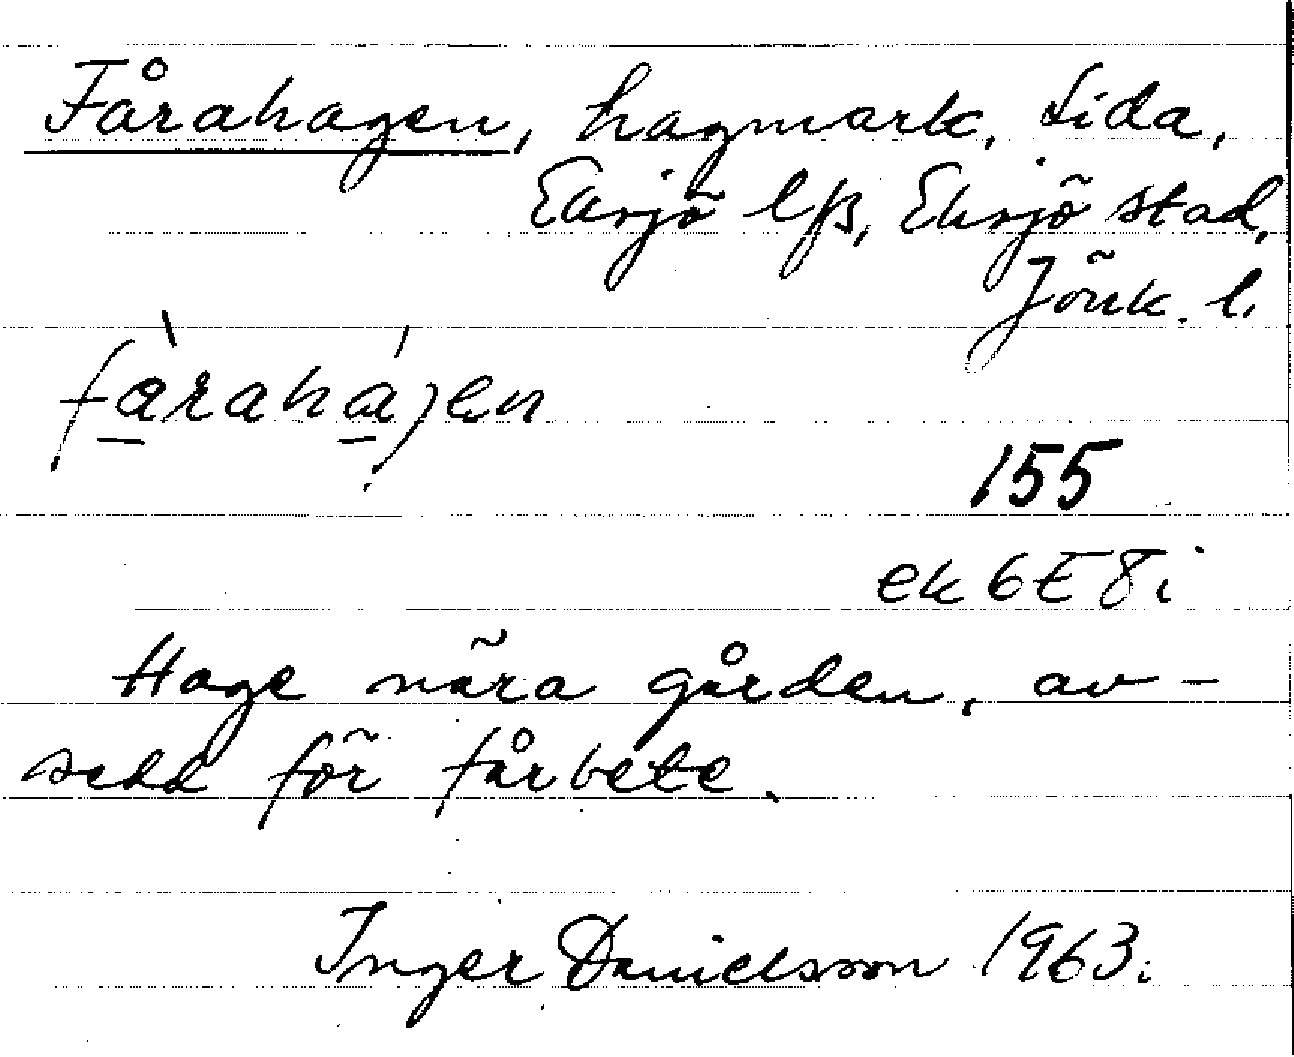 Fårahagen, hagmark, Lida,
Eksjö lfs, Eksjö stad,
Jönk. l.
155
ek 6E8i
Hage nära gården, av-
sedd för fårbete.
Inger Danielsson 1963.